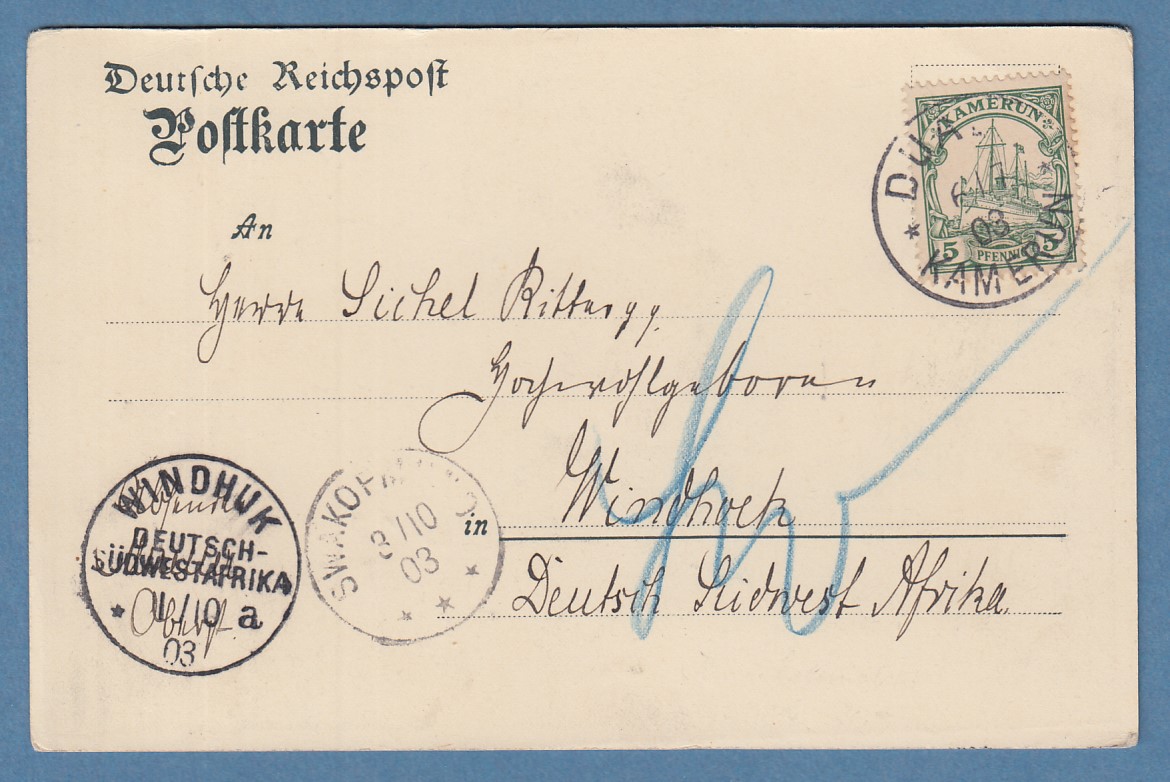 Deutsche Reichspost
Postkarte
KAMERUN
5 PFENNIG 5
DUALA
03
KAMERUN
An
Herrn Sichel Ritter pp.
Hochwohlgeboren
Windhoek
in
Deutsch Südwest Afrika.
WINDHUK
DEUTSCH-
SÜDWESTAFRIKA
/10 a
03
SWAKOPMUND
3/10
03
Absender